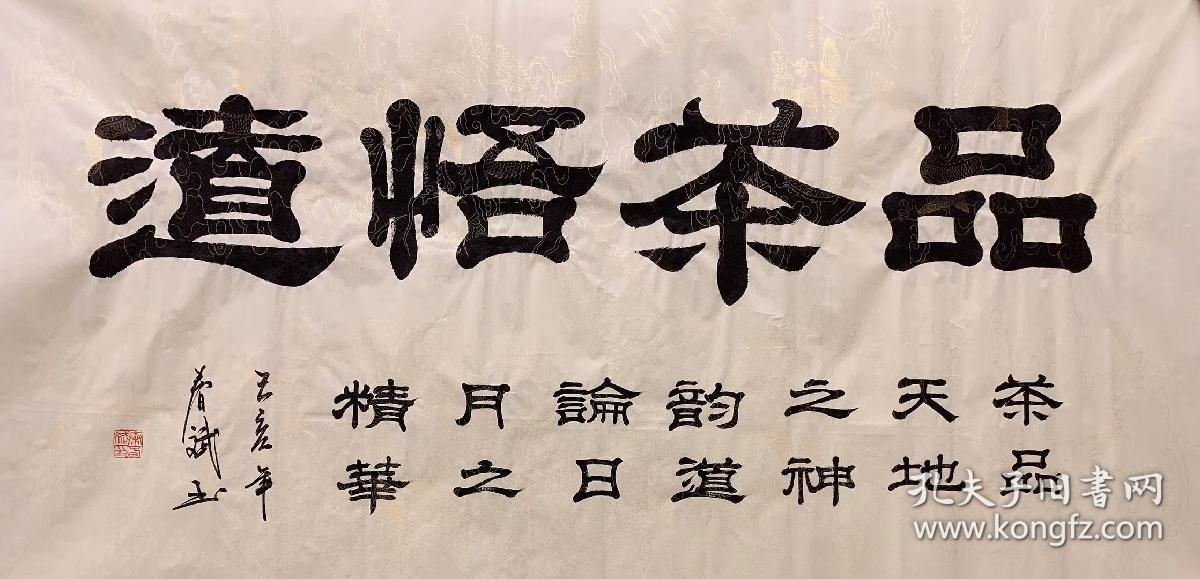 品茶悟道
茶品
天地
之神
韵道
論日
月之
精華
己亥年
春斌书
孔夫子旧书网
www.kongfz.com